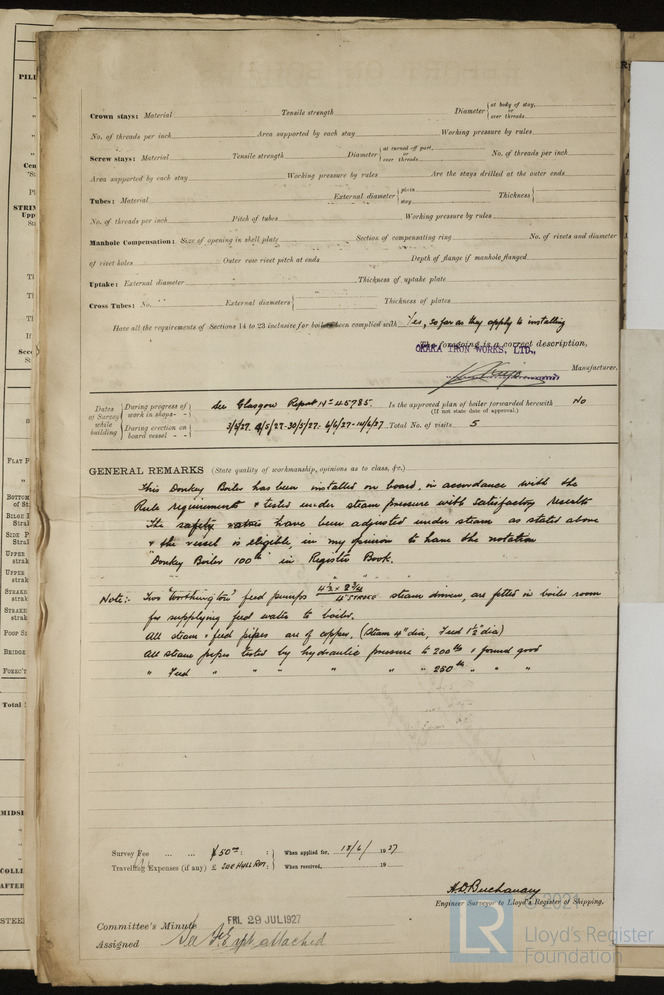 Crown stays: Material Tensile strength Diameter { at body of stay, or over threads
No. of threads per inch Area supported by each stay Working pressure by rules
Screw stays: Material Tensile strength Diameter { at turned off part, or over threads No. of threads per inch
Area supported by each stay Working pressure by rules Are the stays drilled at the outer ends
Tubes: Material External diameter { plain stay Thickness {
No. of threads per inch Pitch of tubes Working pressure by rules
Manhole Compensation: Size of opening in shell plate Section of compensating ring No. of rivets and diameter
of rivet holes Outer row rivet pitch at ends Depth of flange if manhole flanged
Uptake: External diameter Thickness of uptake plate
Cross Tubes: No. External diameters { Thickness of plates
Have all the requirements of Sections 14 to 23 inclusive for boilers been complied with Yes, so far as they apply to installing
The foregoing is a correct description,
OSAKA IRON WORKS, LTD.,
Manufacturer.
Dates of Survey while building { During progress of work in shops - - See Glasgow Report No 45785. Is the approved plan of boiler forwarded herewith No
(If not state date of approval.)
During erection on board vessel - - 3/5/27. 9/5/27-30/5/27- 6/6/27-14/6/27 Total No. of visits 5
GENERAL REMARKS (State quality of workmanship, opinions as to class, &c.)
This Donkey Boiler has been installed on board, in accordance with the
Rule requirements & tested under steam pressure with satisfactory results
The safety valves have been adjusted under steam as stated above
& the vessel is eligible, in my opinion to have the notation
"Donkey Boiler 100 lb" in Register Book.
Note:- Two "Worthington" feed pumps 4½" x 2¾" / 4" STROKE steam driven, are fitted in boiler room
for supplying feed water to boiler.
All steam & feed pipes are of copper. (Steam 4" dia, Feed 1½" dia)
All steam pipes tested by hydraulic pressure to 200 lbs & found good
" Feed " " " " " " 250 lb " " "
Survey Fee ... ... ¥50.00 : : When applied for, 15/6/ 1927
Travelling Expenses (if any) £ : : When received, 19
A.D. Buchanan
Engineer Surveyor to Lloyd's Register of Shipping.
Committee's Minute FRI. 29 JUL 1927
Assigned See attached
© 2021
LR Lloyd's Register
Foundation